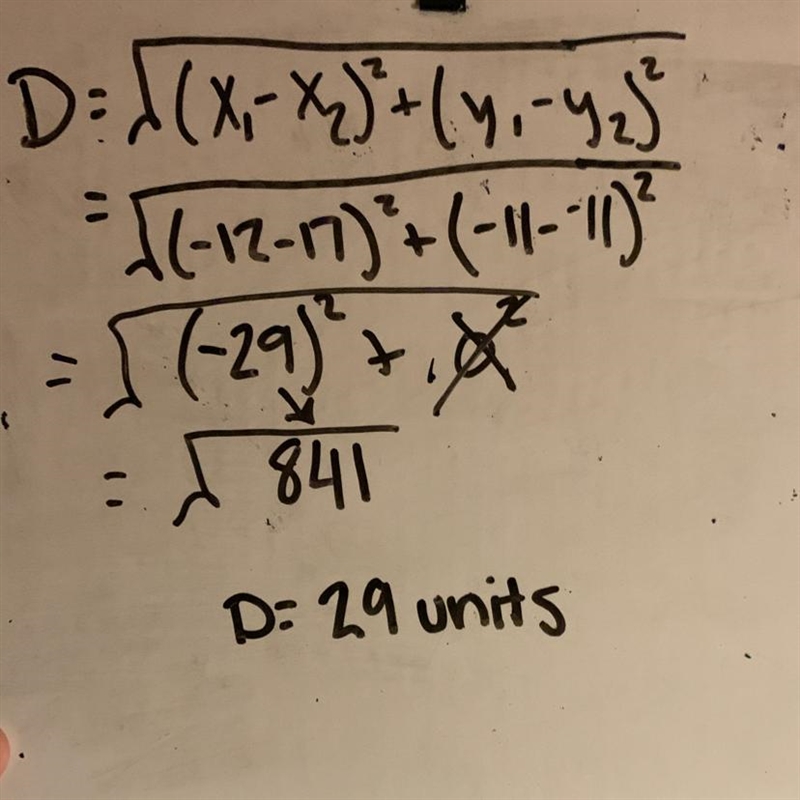 D = √(x₁ - x₂)² + (y₁ - y₂)²
= √(-12 - 17)² + (-11 - -11)²
= √(-29)² + 0²
= √841
D = 29 units